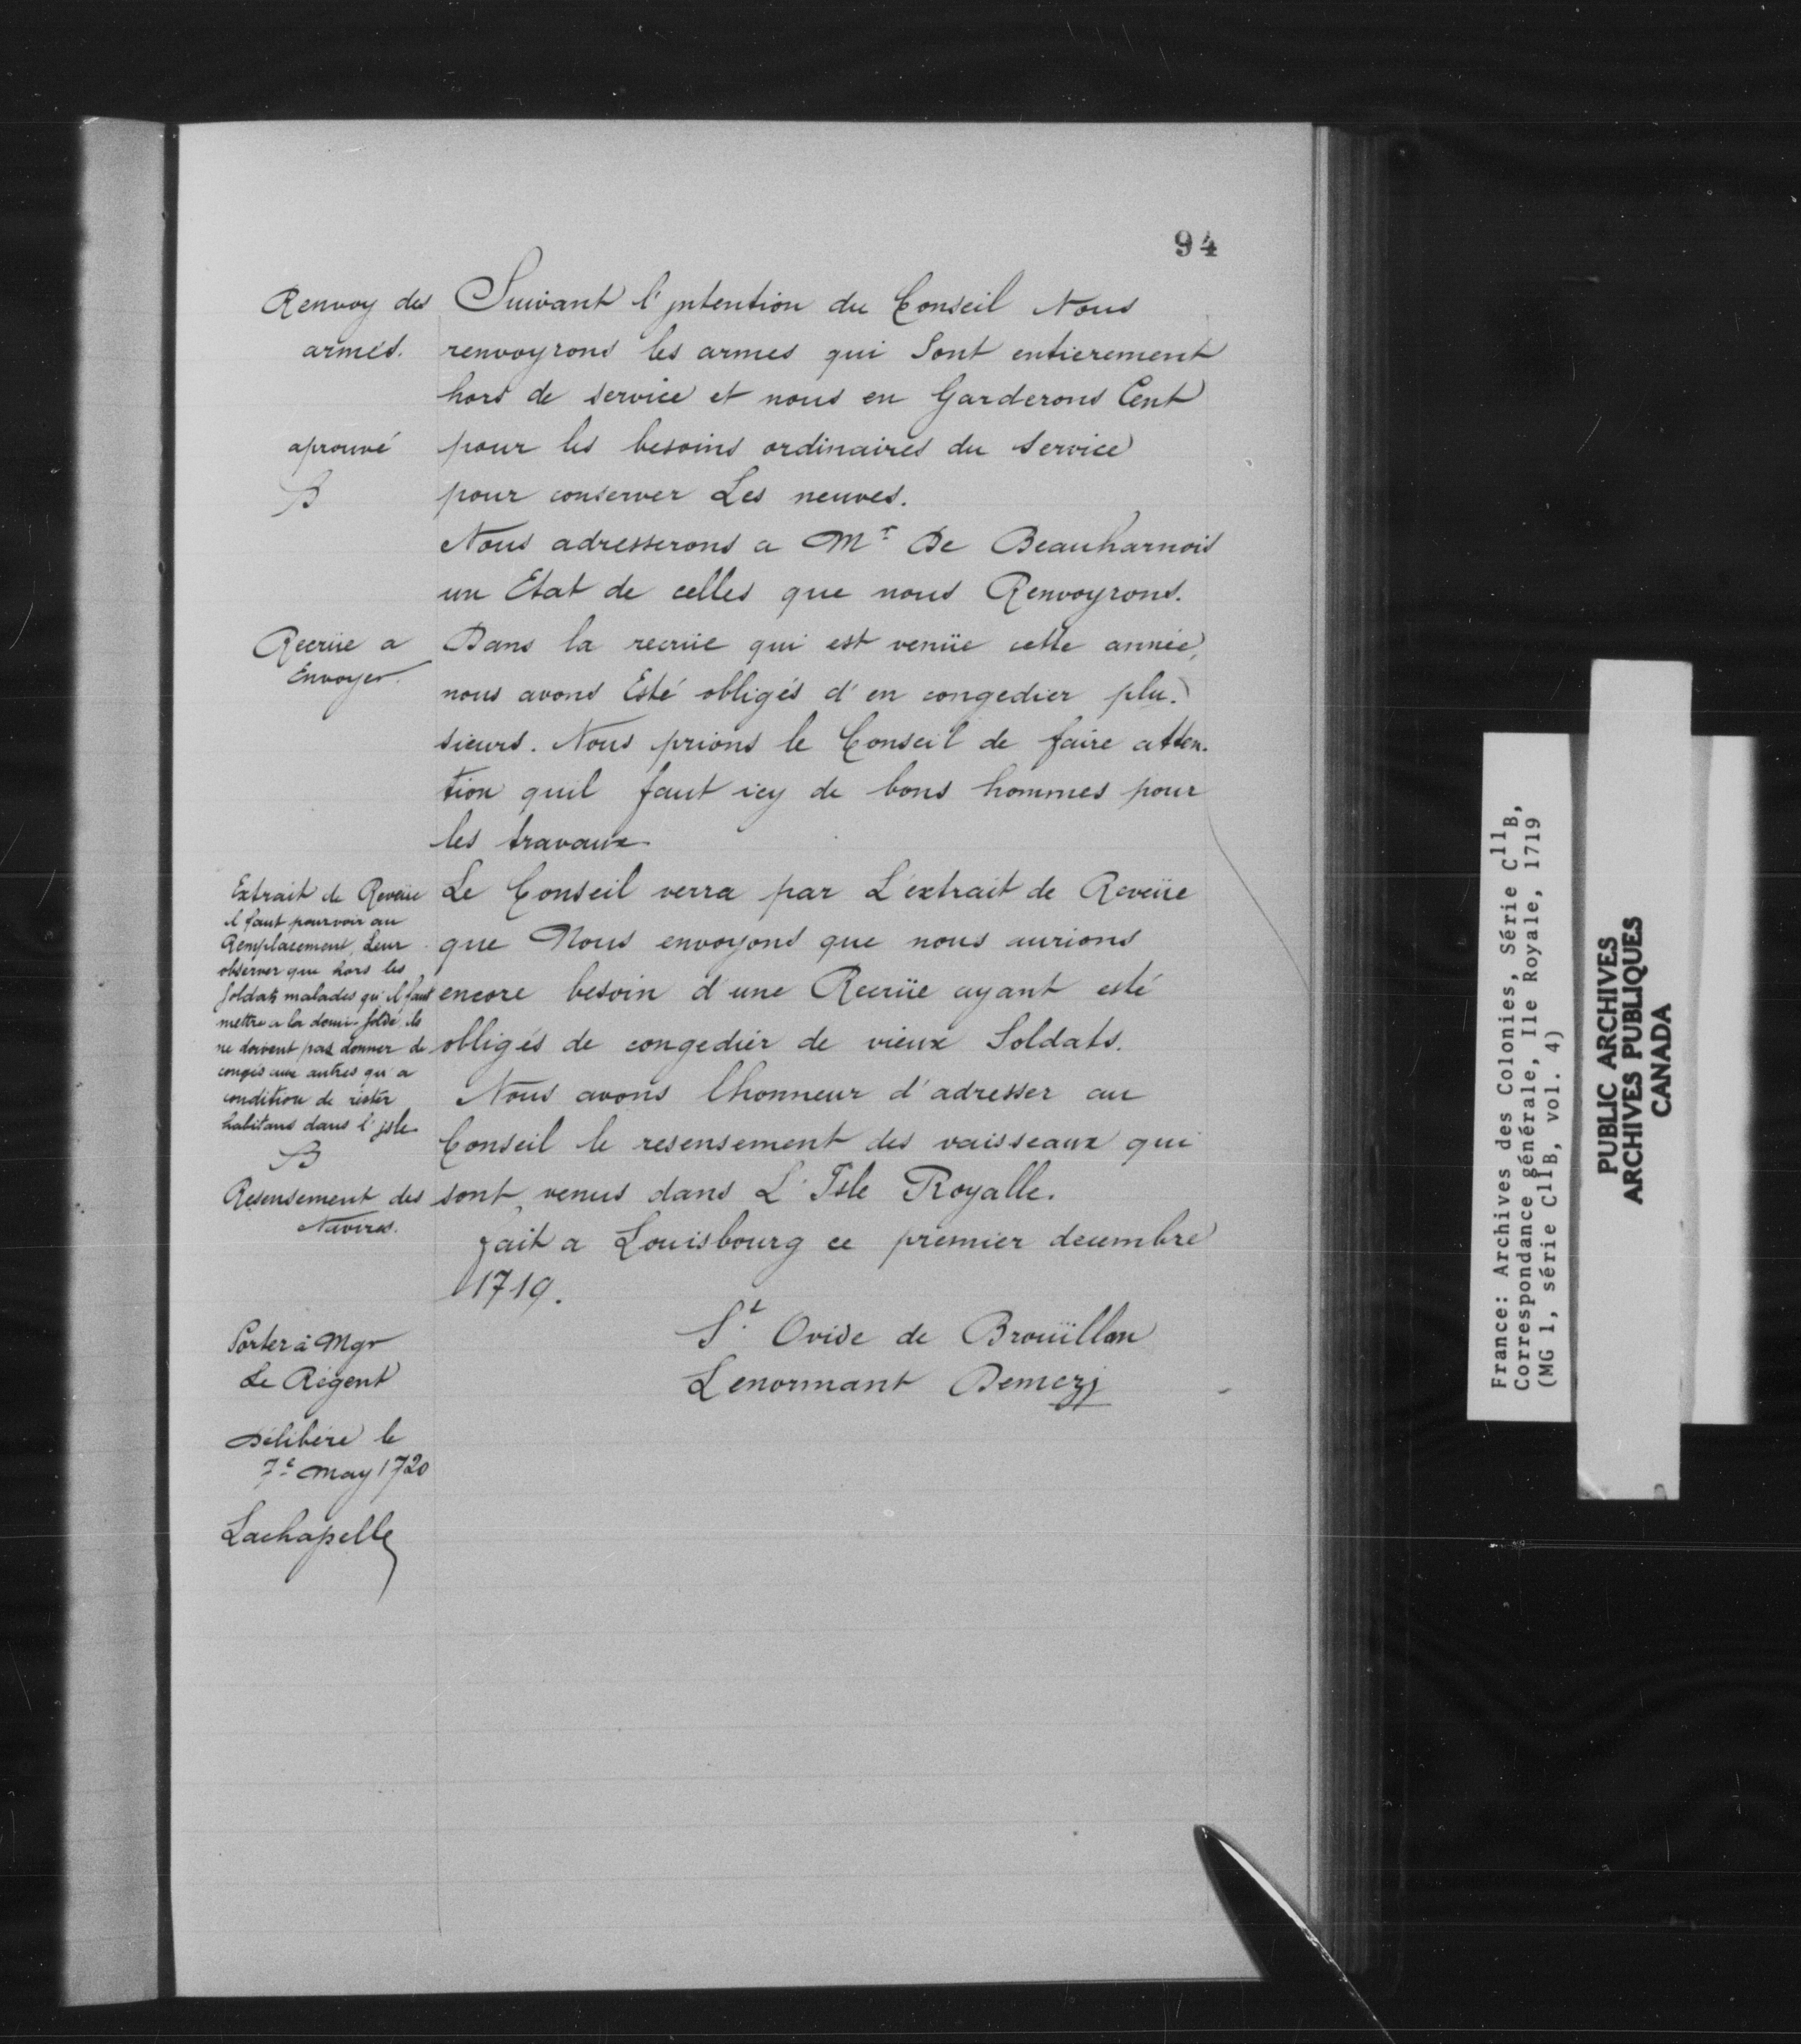 94
Renvoy des
armes.
aprouvé
B
Suivant l'jntention du Conseil Nous
renvoyrons les armes qui Sont entierement
hors de service et nous en Garderons Cent
pour les besoins ordinaires du service
pour conserver Les neuves.
Nous adresserons a Mr. De Beauharnois
un Etat de celles que nous Renvoyrons.
Recrüe a
Envoyer.
Dans la recrüe qui est venüe cette année,
nous avons Esté obligés d'en congedier plu-
sieurs. Nous prions le Conseil de faire atten-
tion quil faut icy de bons hommes pour
les travaux
Extrait de Reveüe
il faut pourvoir au
Remplacement, Leur
observer que hors les
Soldats malades qu'il faut
mettre a la demi-solde, ils
ne doivent pas donner de
congés aux autres qu'a
condition de rester
habitans dans l'jsle
B
Le Conseil verra par L'extrait de Reveüe
que Nous envoyons que nous aurions
encore besoin d'une Recrüe ayant esté
obligés de congedier de vieux Soldats.
Nous avons lhonneur d'adresser au
Conseil le resensement des vaisseaux qui
sont venus dans L'Isle Royalle.
Resensement des
Navires.
fait a Louisbourg ce premier decembre
1719.
St. Ovide de Broüillan
Lenormant Demezj
Porter à Mgr
Le Régent
Délibéré le
7e May 1720
Lachapelle
France: Archives des Colonies, Série C11B,
Correspondance générale, Ile Royale, 1719
(MG 1, série C11B, vol. 4)
PUBLIC ARCHIVES
ARCHIVES PUBLIQUES
CANADA